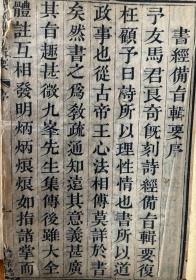 書經備旨輯要序
予友馬君良奇既刻詩經備旨輯要復
枉顧予曰詩所以理性情也書所以道
政事也從古帝王心法相傳莫詳於書
矣然書之為敎疏通知遠其意義甚廣
其旨趣甚微九峯先生集傳後雖大全
體註互相發明炳炳烺烺如指諸掌而